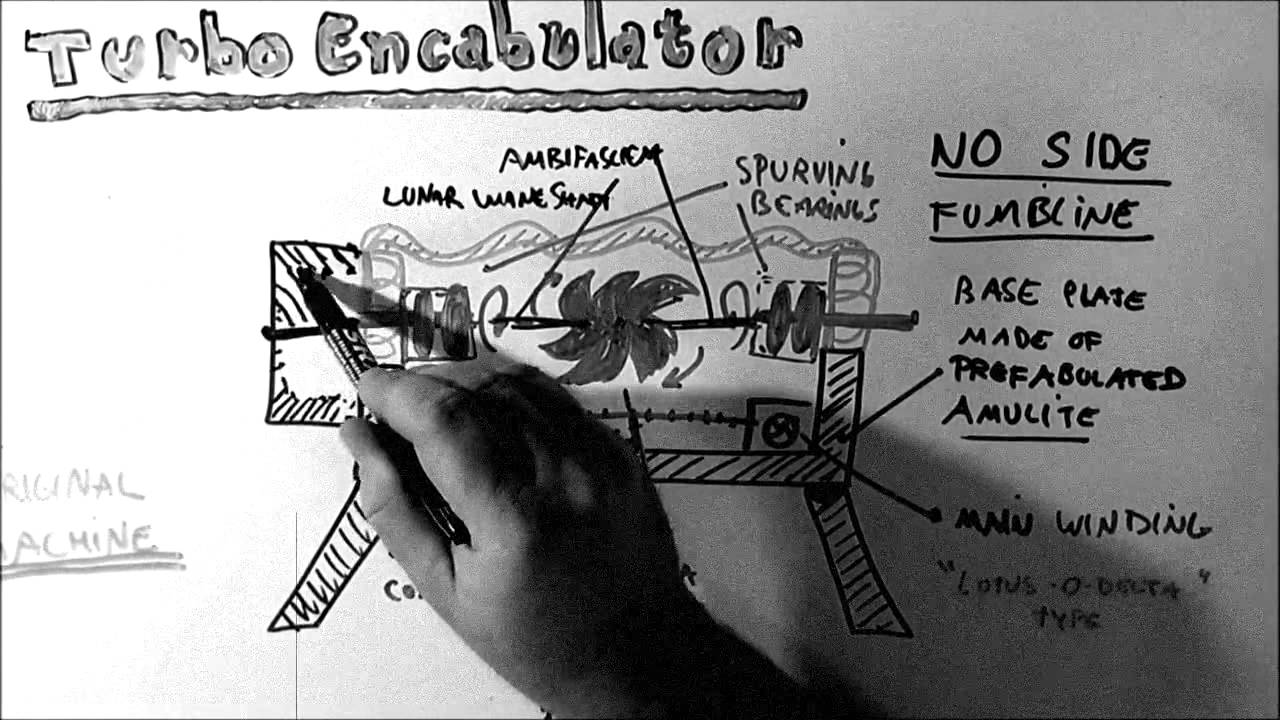 Turbo Encabulator
AMBIFASCIENT
LUNAR WANE SHAFT
SPURVING
BEARINGS
NO SIDE
FUMBLINE
BASE PLATE
MADE OF
PREFABULATED
AMULITE
MAIN WINDING
"LOTUS-O-DELTA"
TYPE
RIGINAL
MACHINE